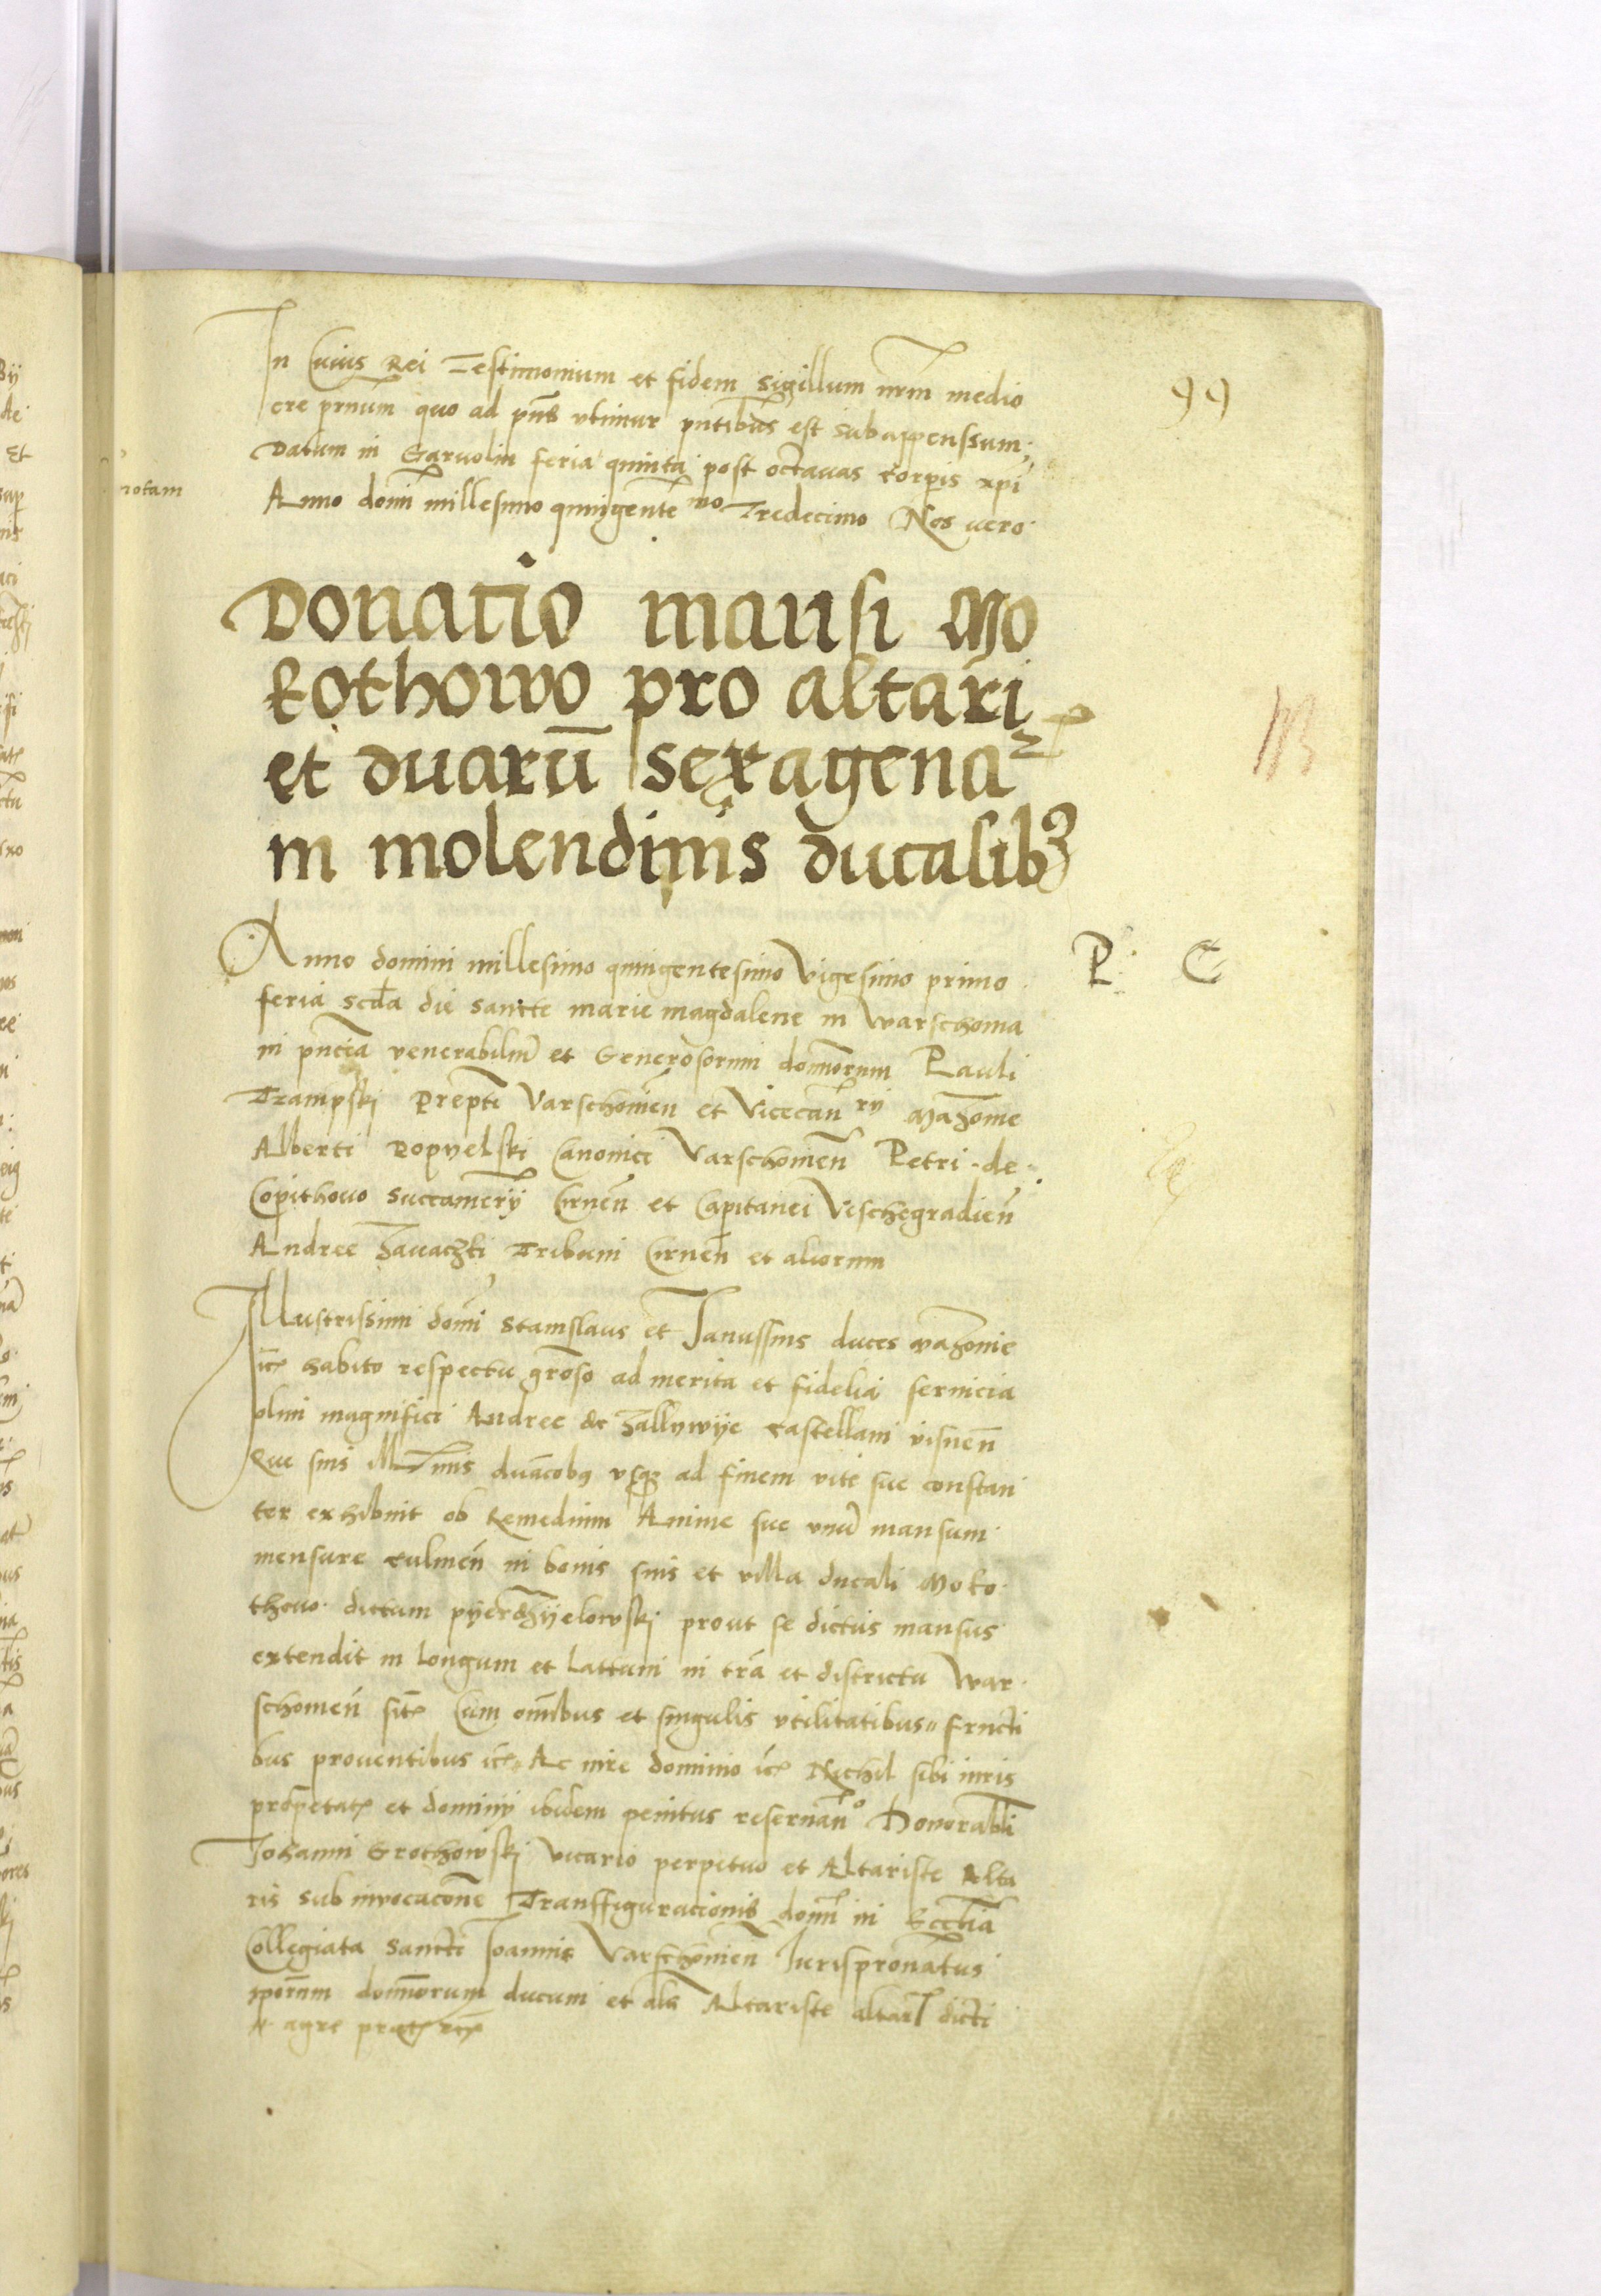 99
In Cuius Rei Testimonium et fidem sigillum nr̃m medio
cre prnum quo ad pñs vtimur pñtibus est subappenssum;
Datum in Garuolin feria quinta post octauas corpis xpi
Anno domĩ millesimo quingentẽmo Tredecimo Nos vero
Donatio mansi Mo
kothowo pro altari
et duarũ sexagena
in molendinis ducalib9
Anno domini millesimo quingentesimo Vigesimo primo
P: C
feria scda die sancte marie magdalene in warschouia
in pñcia venerabiliũ et Generosorum domĩorum Pauli
Trampski Prepti Varschouieñ et Vicecanrij Mazouie
Alberti Popyelski Canonici Varschouieñ Petri de
Copithowo succamerij Cirneñ et Capitanei Vischegradieñ
Andree Zavaczki Tribuni Cirneñ et aliorum
Illustrissimi domĩ Stanislaus et Janussius duces Mazouie
ic̃ habito respectu groso ad merita et fidelia seruicia
olim magnifici Andree de Zallywye castellani visneñ
Que suis Illmis ducatcobus usq3 ad finem vite sue constan
ter exhibuit ob Remedium Anime sue vnũ mansum
mensure culmeñ in bonis suis et villa ducali Moko
thouo dictum pyerdzyelowski prout se dictus mansus
extendit in longum et lattum in trã et districtu War
schouieñ sit̃ Cum omĩbus et singulis vtilitatibus fructi
bus prouentibus ic̃ Ac iure dominio ic̃ Nichil sibi iuris
proprietatis et dominij ibidem penitus reseruañ Honorabli
Johanni Grothowski vicario perpetuo et Altariste Alta
ris sub inuocacõne Transffiguracionis domĩ in Eccliã
Collegiata sancti Joannis Varschouieñ Jurispronatus
iporum domĩorum ducum et als Altariste altaris dicti